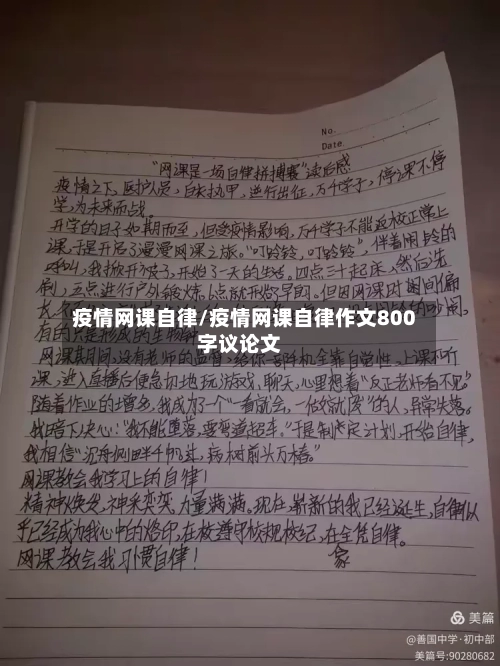 No.
Date
"网课是一场自律拼搏赛"读后感
疫情之下，医护人员，白衣执甲，逆行出征，万千学子，停课不停
学，为未来而战。
开学的日子如期而至，但受疫情影响，万千学子不能返校正常上
课，于是开启了漫漫网课之旅。"叮铃铃，叮铃铃"，伴着闹铃的
呼叫，我掀开了被子，开始了一天的生活。四点三十起床，然后洗
疫情网课自律/疫情网课自律作文800
字议论文
网课期间，没有老师的监督，给你一部手机全靠自觉性，上课不听
课，进入直播后便急切地玩游戏，聊天，心里想着"反正老师看不见"
随着作业的增多，我成为了个"一看就会，一做就废"的人，异常失落。
我暗下决心："我不能堕落，要弯道超车。"于是制定计划，开始自律，
我相信"沉舟侧畔千帆过，病树前头万木春。"
网课教会我学习上的自律！
精神焕发，神采奕奕，力量满满。现在，崭新的我已经诞生，自律似
乎已经成为我心中的烙印，在校遵守校规校纪，在家全凭自律。
网课教会我习惯自律！
美篇
@善国中学·初中部
美篇号:90280682